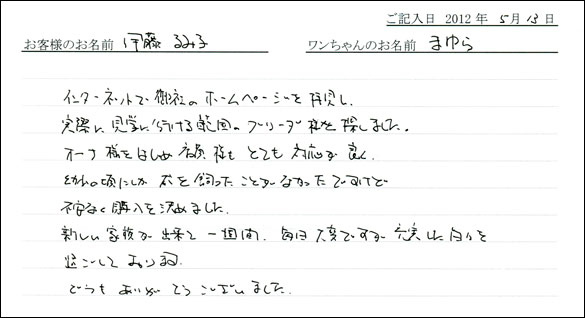 ご記入日 2012年 5月 13日
お客様のお名前 伊藤 るみ子 ワンちゃんのお名前 まゆら
インターネットで御社のホームページを拝見し、
実際に見学に行ける範囲のブリーダー様を探しました。
オーナー様をはじめ店員様もとても対応が良く、
幼少の頃にしか犬を飼ったことがなかったですけど
不安なく購入を決めました。
新しい家族が出来て一週間、毎日大変ですが充実した日々を
過ごしております。
どうもありがとうございました。